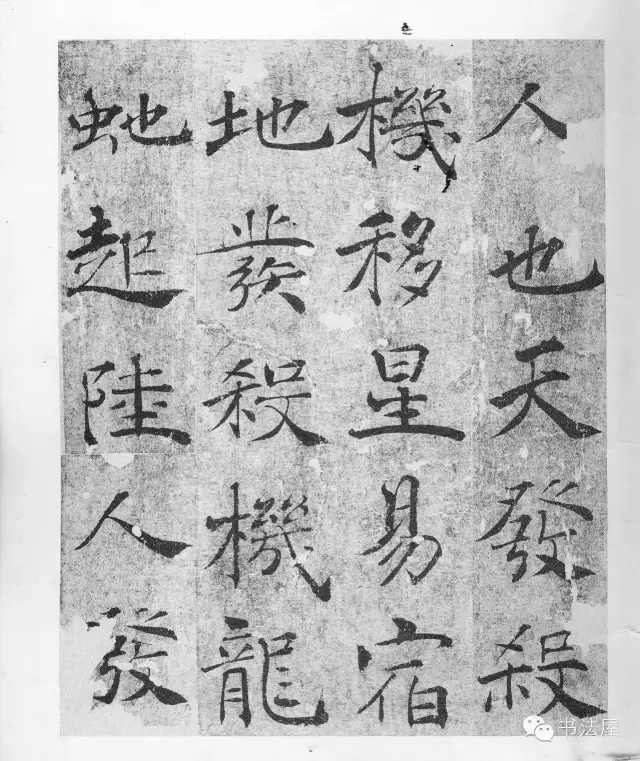 人也天發殺
機移星易宿
地發殺機龍
虵起陸人發
书法屋